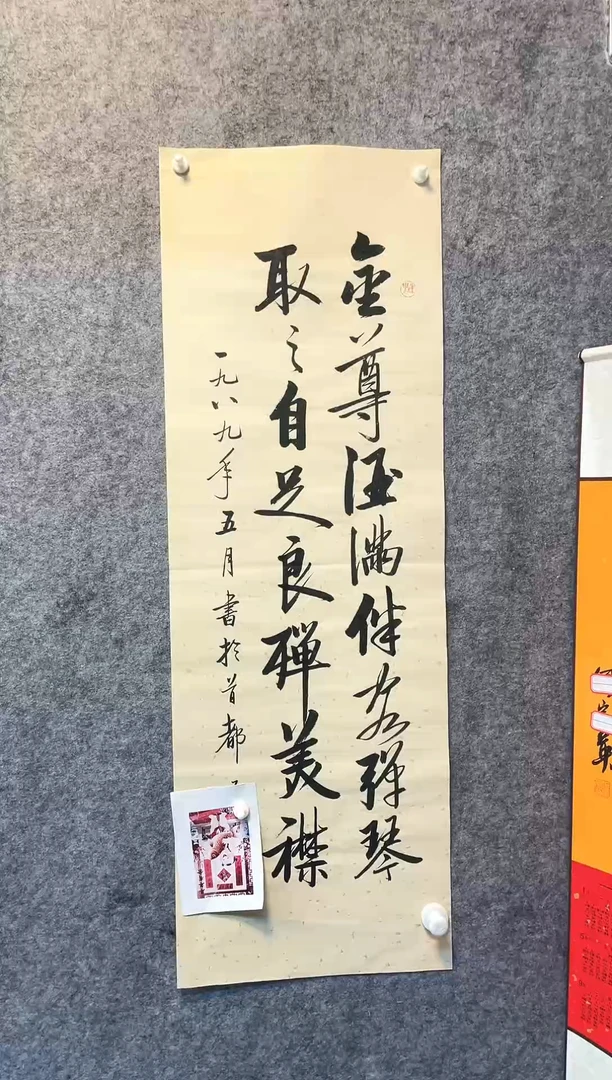 金尊酒满伴客弹琴
取之自足良殚美襟
一九八九年五月書於首都